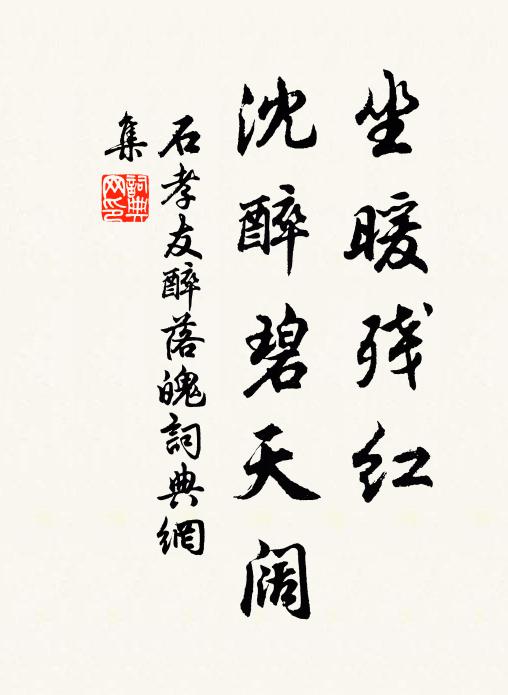 坐暖残红
沈醉碧天阔
石孝友醉落魄詞典網
集
詞典
网印